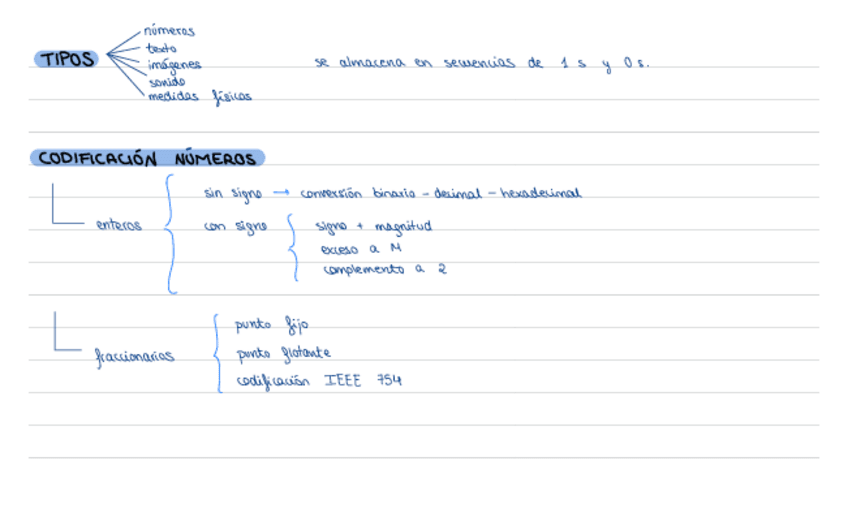 TIPOS
números
texto
imágenes
sonido
medidas físicas
se almacena en secuencias de 1 s y 0 s.
CODIFICACIÓN NÚMEROS
enteros
sin signo → conversión binario - decimal - hexadecimal
con signo
signo + magnitud
exceso a M
complemento a 2
fraccionarios
punto fijo
punto flotante
codificación IEEE 754